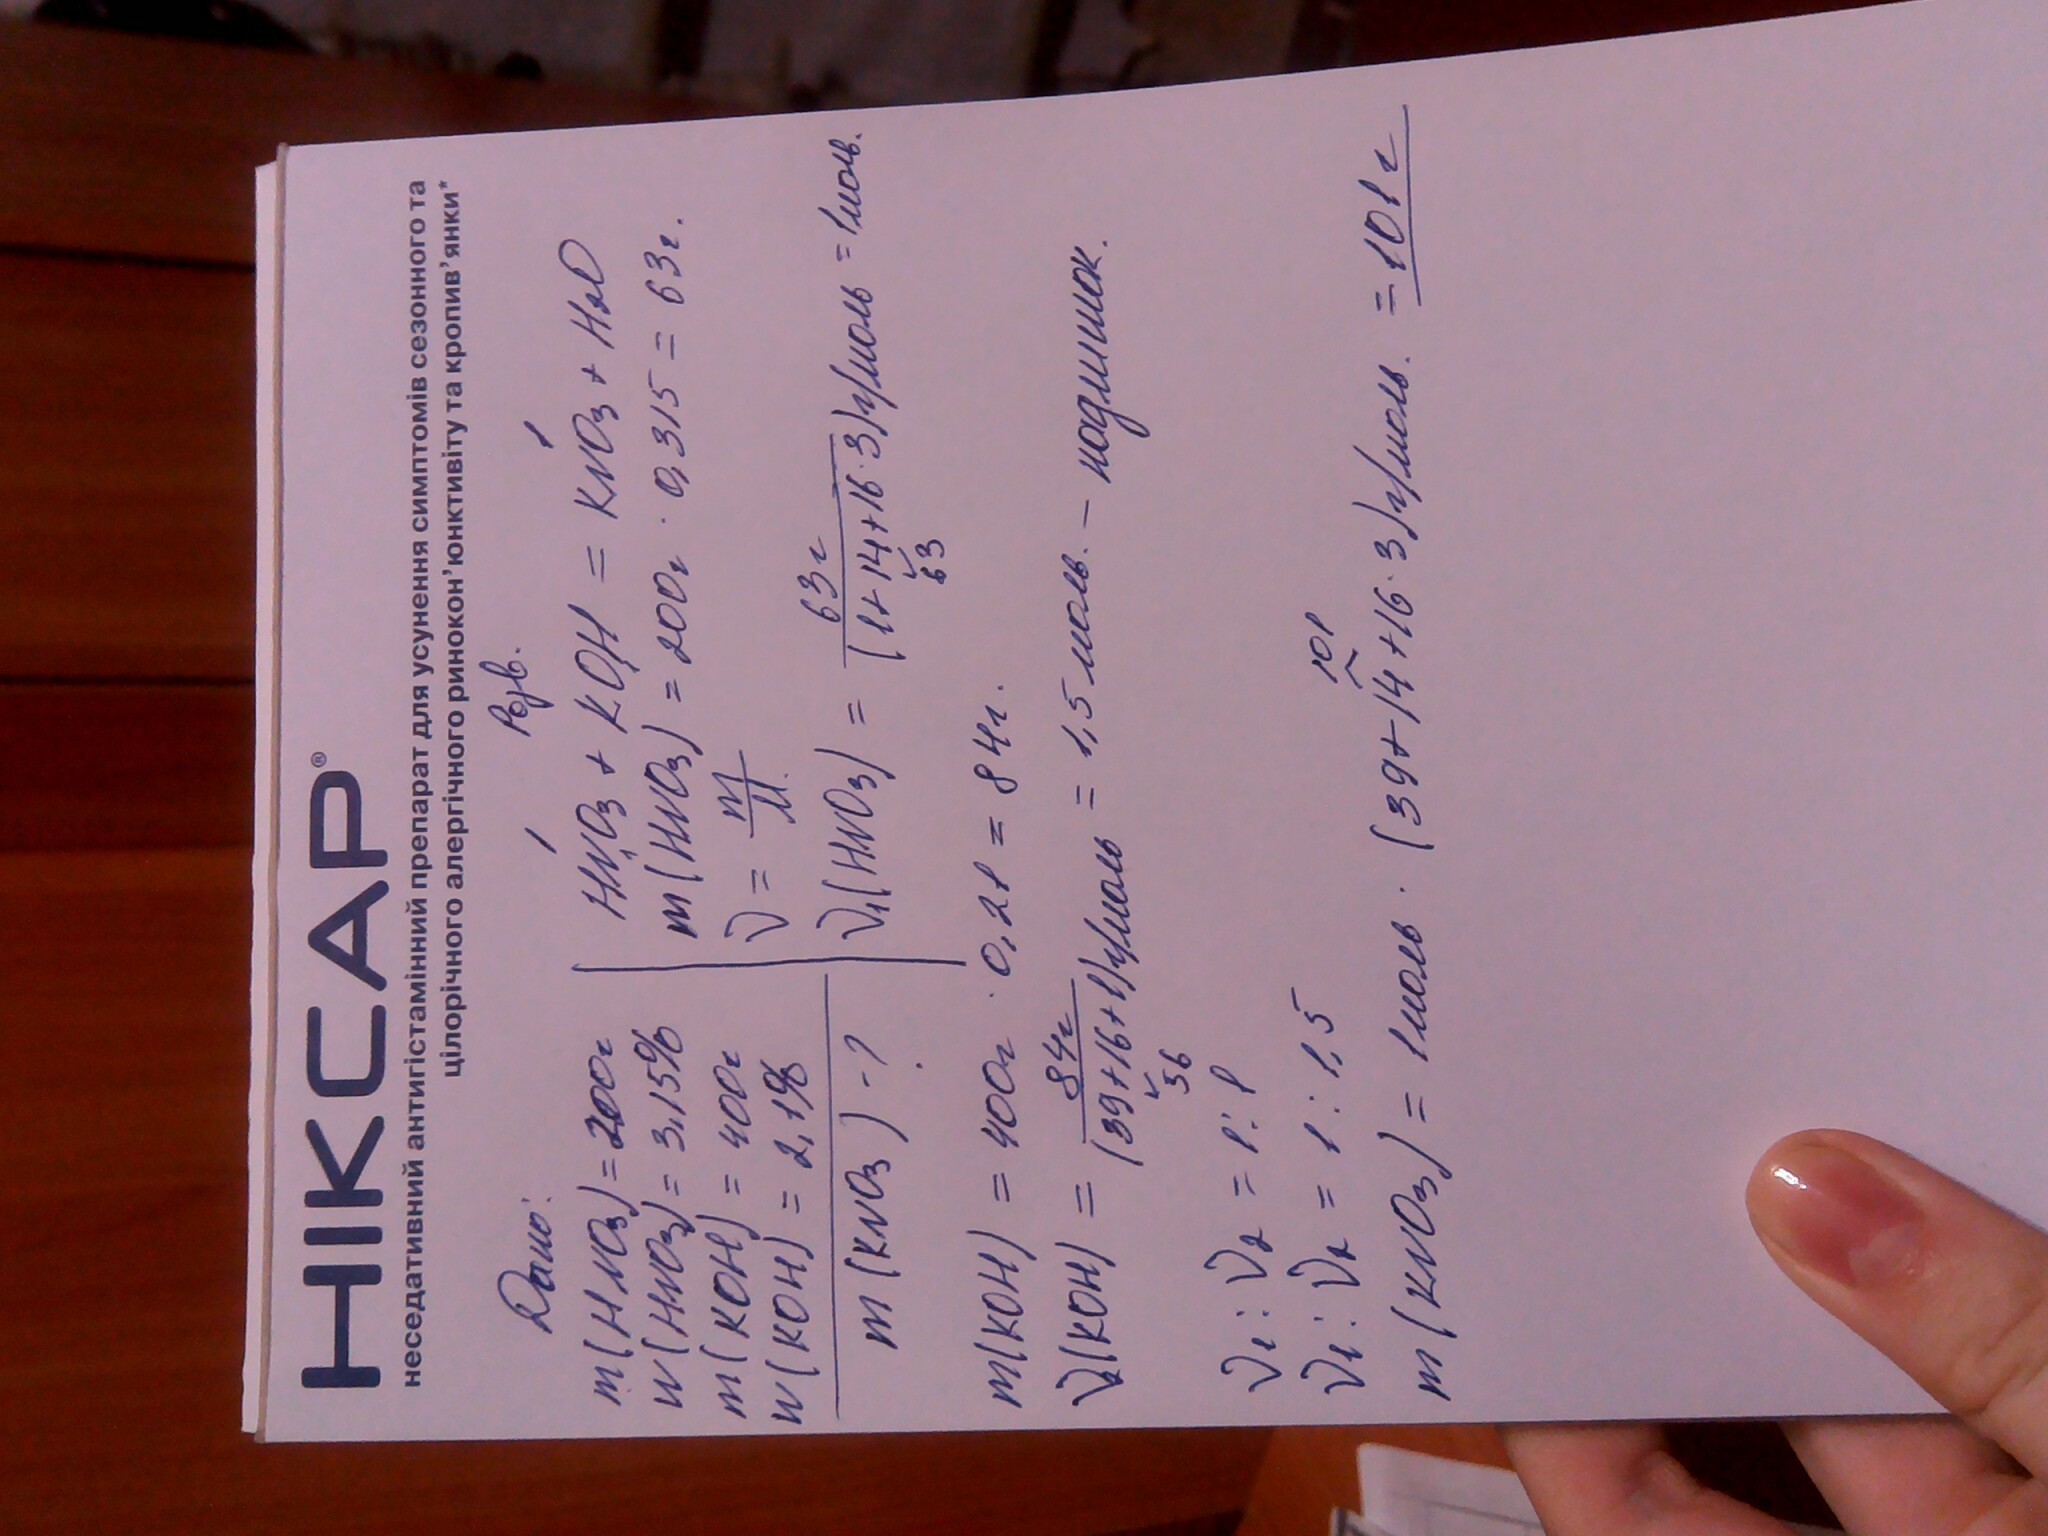 НІКСАР®
неседативний антигістамінний препарат для усунення симптомів сезонного та
цілорічного алергічного ринокон'юнктивіту та кропив'янки*
Дано:
m(HNO3)=200г
w(HNO3)=3,15%
m(KOH)=400г
w(KOH)=2,1%
m(KNO3)-?
Розв.
1 1
HNO3+KOH=KNO3+H2O
1 1
m(HNO3)=200г·0,315=63г.
ν=m/M.
ν1(HNO3)=63г/(1+14+16·3)г/моль=1моль.
63
m(KOH)=400г·0,21=84г.
ν2(KOH)=84г/(39+16+1)г/моль=1,5моль.– надлишок.
56
ν1:ν2=1:1
ν1:ν2=1:1,5
101
m(KNO3)=1моль·(39+14+16·3)г/моль.=101г